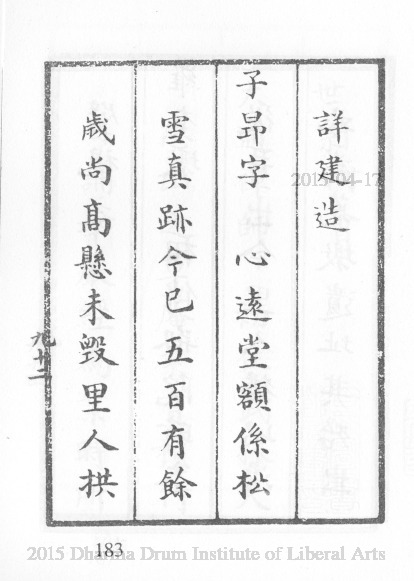 詳建造
子昻字心遠堂額係松
雪真跡今已五百有餘
歲尚髙懸未毀里人拱
九十二
183
2015-04-17
2015 Dharma Drum Institute of Liberal Arts